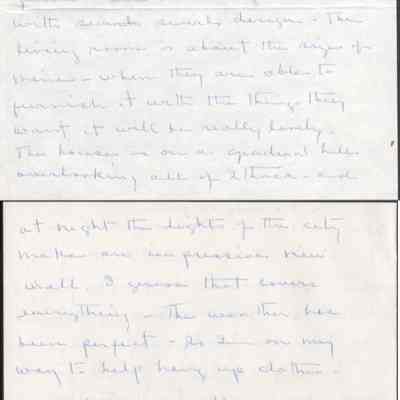 with swirls design. The
living room is about the size of
mine - when they are able to
furnish it with the things they
want it will be really lovely.
The house is on a gradual hill
overlooking all of Ithaca - and
at night the lights of the city
make an impressive view
well, I guess that covers
everything - The weather has
been perfect - So I'm on my
way to help hang up clothes -